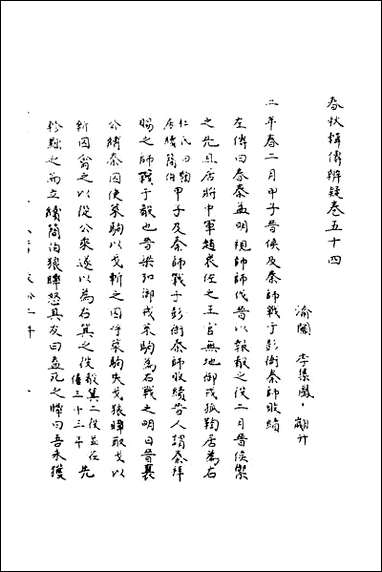 春秋輯傳辨疑卷五十四
渝關 李集鳳 翽升
二年春二月甲子晉侯及秦師戰于彭衙秦師敗績
左傳曰春秦孟明視帥師伐晉以報殽之役二月晉侯禦
之先且居將中軍趙衰佐之王官無地御戎狐鞫居為右
杜氏曰鞫居續簡伯 甲子及秦師戰于彭衙秦師敗績晉人謂秦拜
賜之師戰于殽也晉梁弘御戎萊駒為右戰之明日晉襄
公縛秦囚使萊駒以戈斬之囚呼萊駒失戈狼瞫取戈以
斬囚禽之以從公乘遂以為右箕之役 殽箕二役並在僖三十三年 先
軫黜之而立續簡伯狼瞫怒其友曰盍死之瞫曰吾未獲